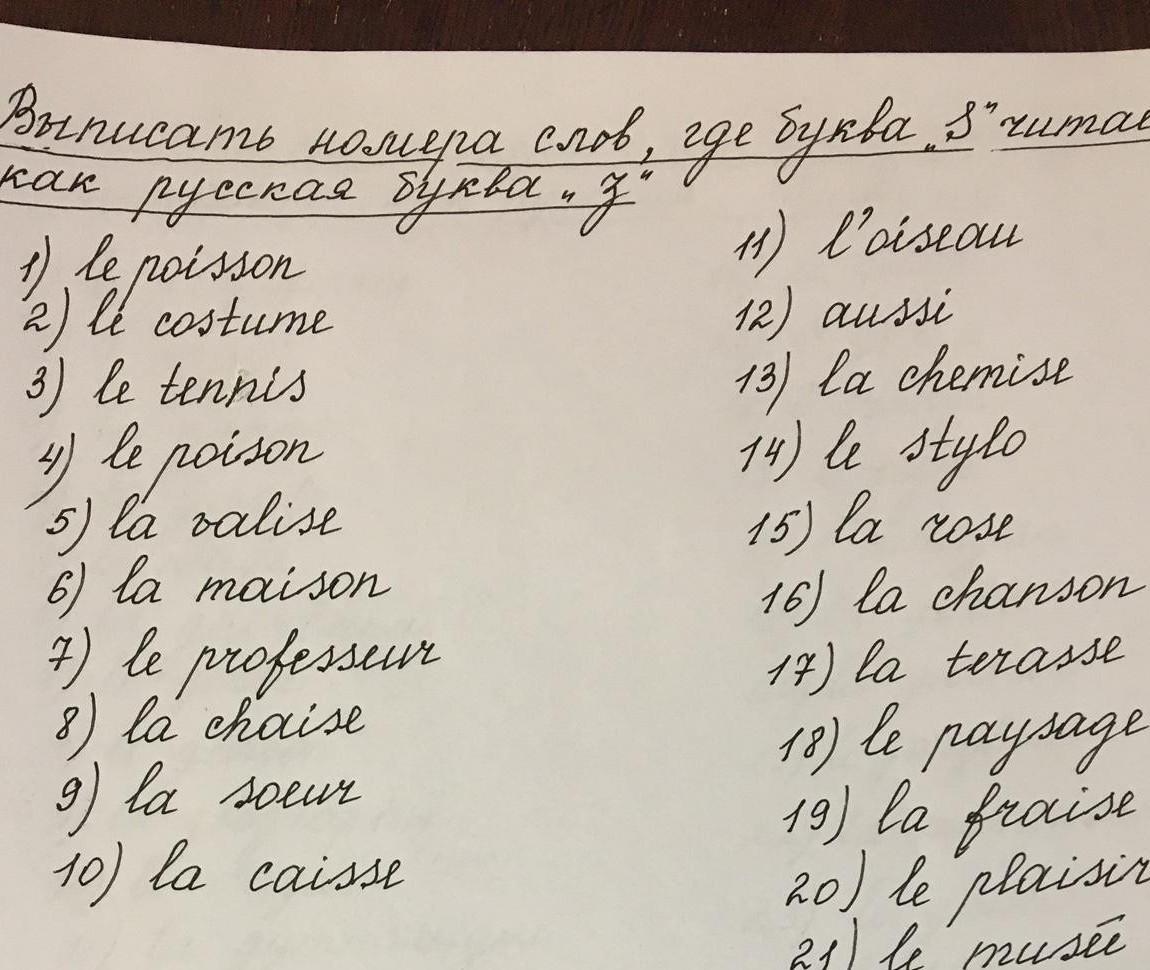 Выписать номера слов, где буква „S" читае
как русская буква „З"
1) le poisson
2) le costume
3) le tennis
4) le poison
5) la valise
6) la maison
7) le professeur
8) la chaise
9) la soeur
10) la caisse
11) l'oiseau
12) aussi
13) la chemise
14) le stylo
15) la rose
16) la chanson
17) la terasse
18) le paysage
19) la fraise
20) le plaisir
21) le musée